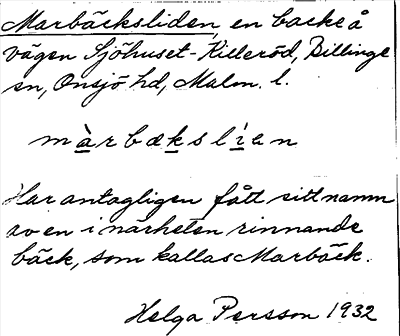 Marbäcksliden, en backe å
vägen Sjöhuset-Killeröd, Billinge
sn, Onsjö hd, Malm. l.
màrbækslíən
Har antagligen fått sitt namn
av en i närheten rinnande
bäck, som kallas Marbäck.
Helga Persson 1932